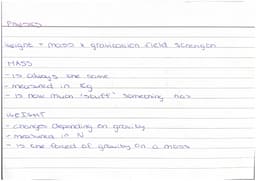 weight = mass x gravitation field strength
MASS
- is always the same
- measured in Kg
- is how much 'stuff' something has
WEIGHT
- changes depending on gravity
- measured in N
- is the force of gravity on a mass